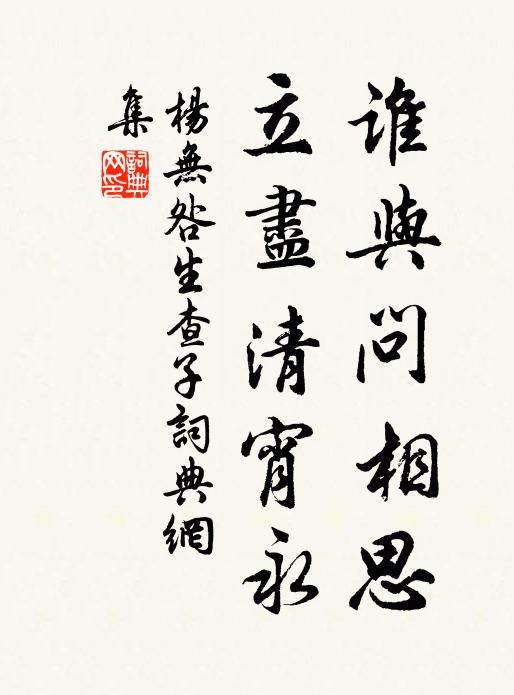 誰與問相思
立盡清宵永
楊無咎生查子詞典網
集
詞典
网印